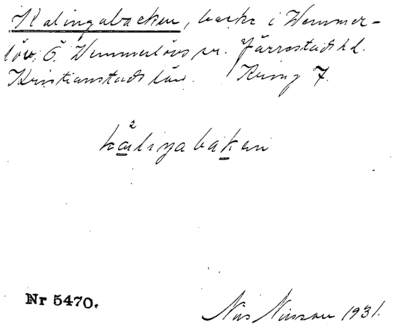 Kalingabacken, backe i Hemmer-
löv, Ö. Hemmerlövs sn. Järrestads hd.
Kristianstads län. 7.
kälingabaken
Nr 5470.
Nils Nilsson 1931.